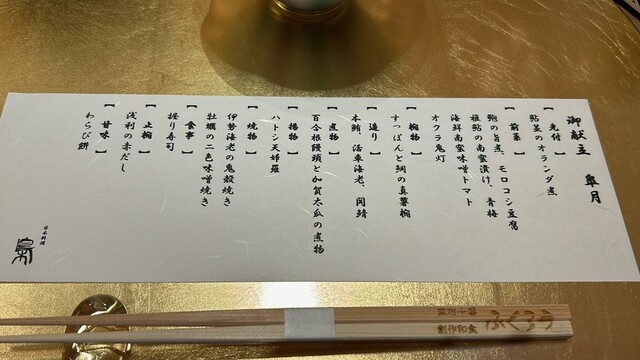 御献立　皐月
【先付】
鮎並のオランダ煮
【前菜】
鮑の旨煮、モロコシ豆腐
稚鮎の南蛮漬け、青梅
海鮮南蛮味噌トマト
オクラ鬼灯
【椀物】
すっぽんと鯛の真薯椀
【造り】
本鮪、活車海老、関鯖
【煮物】
百合根饅頭と加賀太瓜の煮物
【揚物】
ハトシ天婦羅
【焼物】
伊勢海老の鬼殻焼き
牡蠣の二色味噌焼き
【食事】
握り寿司
【止椀】
浅利の赤だし
【甘味】
わらび餅
日本料理
創作和食
ふくろう